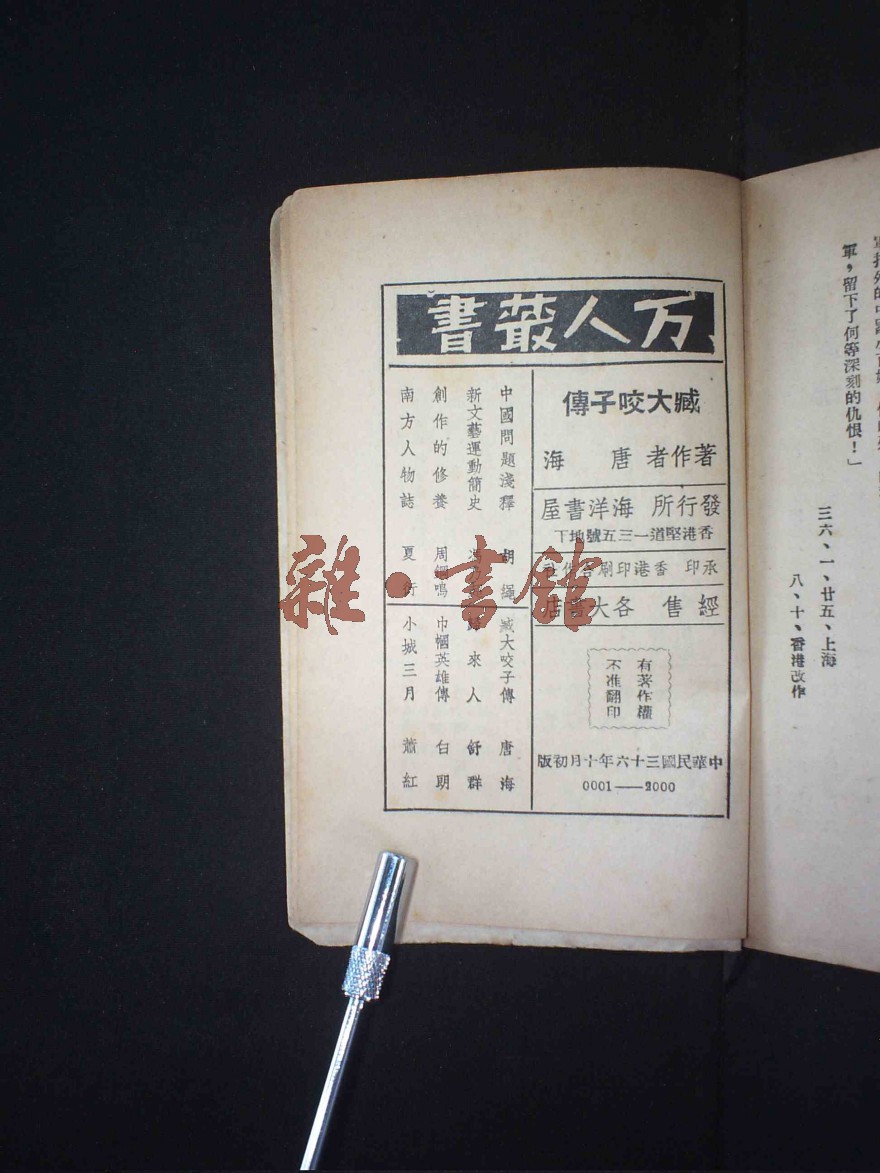 軍，留下了何等深刻的仇恨！」
三六、一、廿五、上海
八、十、香港改作
万人叢書
臧大咬子傳
著作者 唐海
發行所 海洋書屋
香港堅道一三五號地下
承印 香港印刷
經售 各大書店
有著作權
不准翻印
中華民國三十六年十月初版
0001——2000
中國問題淺釋 胡繩
新文藝運動簡史 馮
創作的修養 周鋼鳴
南方人物誌 夏衍
臧大咬子傳 唐海
歸來人 舒群
巾幗英雄傳 白朗
小城三月 蕭紅
雜·書館